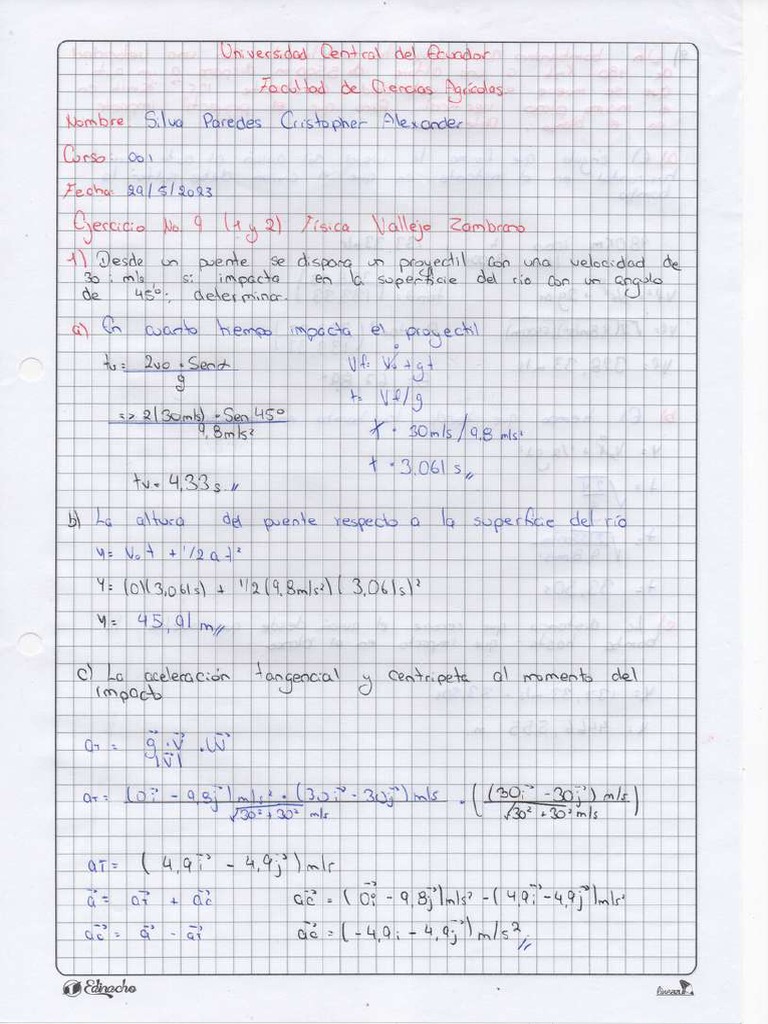 Universidad Central del Ecuador
Facultad de Ciencias Agrícolas
Nombre Silva Paredes Cristopher Alexander
Curso: 001
Fecha: 29/5/2023
Ejercicio No. 9 (1 y 2) Física Vallejo Zambrano
1) Desde un puente se dispara un proyectil con una velocidad de
30 i m/s si impacta en la superficie del río con un angulo
de 45°; determinar.
a) En cuanto tiempo impacta el proyectil
tv = 2vo · Senα / g
Vf = Vo + gt
t = Vf/g
=> 2(30m/s) · Sen 45° / 9,8m/s²
t = 30m/s / 9,8 m/s²
t = 3.061 s //
tv = 4,33 s //
b) La altura del puente respecto a la superficie del río
y = Vo t + 1/2 a t²
y = (0)(3,061s) + 1/2 (9,8m/s²)(3,061s)²
y = 45,91 m //
c) La aceleración tangencial y centripeta al momento del
impacto
aT = g⃗ · v⃗ / |v⃗| · ū
aT = (0i⃗ - 9,8j⃗) m/s² · (30i⃗ - 30j⃗) m/s / √30² + 30² m/s · ((30i⃗ - 30j⃗) m/s / √30² + 30² m/s)
aT = (4,9i⃗ - 4,9j⃗) m/s
a⃗ = aT⃗ + ac⃗ ac⃗ = (0i⃗ - 9,8j⃗) m/s² - (4,9i⃗ - 4,9j⃗) m/s²
ac⃗ = a⃗ - aT⃗ ac⃗ = (-4,9i - 4,9j⃗) m/s² //
Edinacho